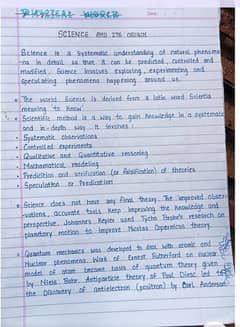 PHYSICAL WORLD
SCIENCE AND ITS ORIGIN
Science is a systematic understanding of natural phenome
-na in detail so that it can be predicted, controlled and
modified. Science involves exploring, experimenting and
speculating phenomena happening around us.
The world Science is derived from a latin word Scientia
meaning 'to know'
Scientific method is a way to gain knowledge in a systematic
and in-depth way. It involves:
Systematic observations
Controlled experiments
Qualitative and Quantitative reasoning
Mathematical modeling
Prediction and verification (or falsification) of theories
Speculation or Prediction
Science does not have any final theory. The improved obser-
-vations, accurate tools keep improving the knowledge and
perspective. Johannes Kepler used Tycho Brahe's research on
planetary motion to improve Nicolas Copernicus theory.
Quantum mechanics was developed to deal with atomic and
Nuclear phenomena. Work of Ernest Rutherford on nuclear
model of atom became basis of quantum theory given
by Niels Bohr. Antiparticle theory of Paul Dirac led to
the Discovery of antielectron (positron) by Carl Anderson.